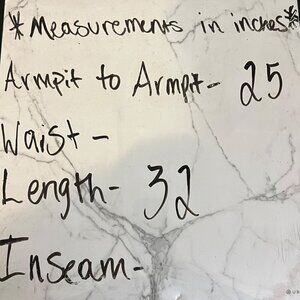 *Measurements in inches*
Armpit to Armpit- 25
Waist-
Length- 32
Inseam-